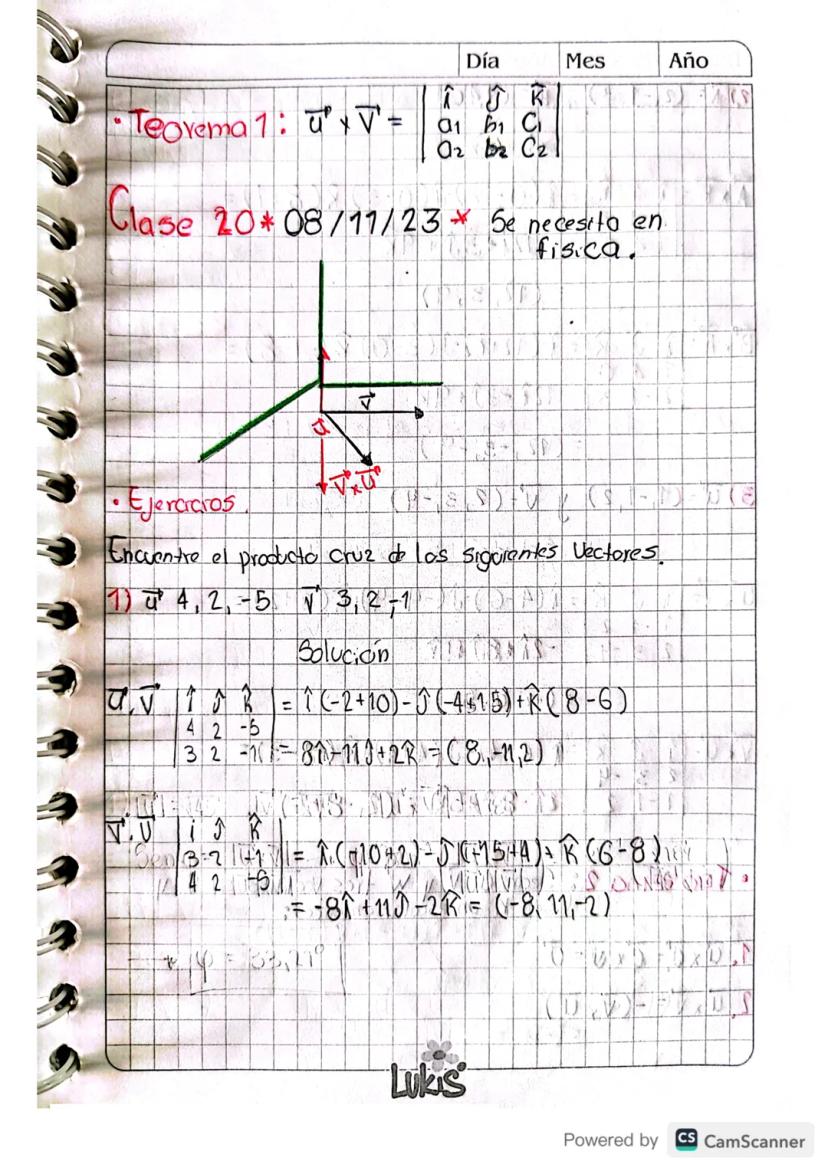 Día Mes Año
• Teorema 1: u⃗ x v⃗ = | î ĵ k̂ |
a1 b1 C1
a2 b2 C2
Clase 20 * 08/11/23 * Se necesito en
fisica.
v⃗
u⃗
v⃗ x u⃗
• Ejercicios.
Encuentre el producto cruz de los siguientes Vectores.
1) u⃗ 4, 2, -5 v⃗ 3, 2, -1
Solución
u⃗.v⃗ | î ĵ k̂ | = î(-2+10) - ĵ(-4+15) + k̂(8-6)
4 2 -5
3 2 -1 = 8î - 11ĵ + 2k̂ = (8, -11, 2)
v⃗.u⃗ | i ĵ k̂ |
3 2 -1 = î(-10+2) - ĵ(-15+4) + k̂(6-8)
4 2 -5
= -8î + 11ĵ - 2k̂ = (-8, 11, -2)
Lukis
Powered by CS CamScanner